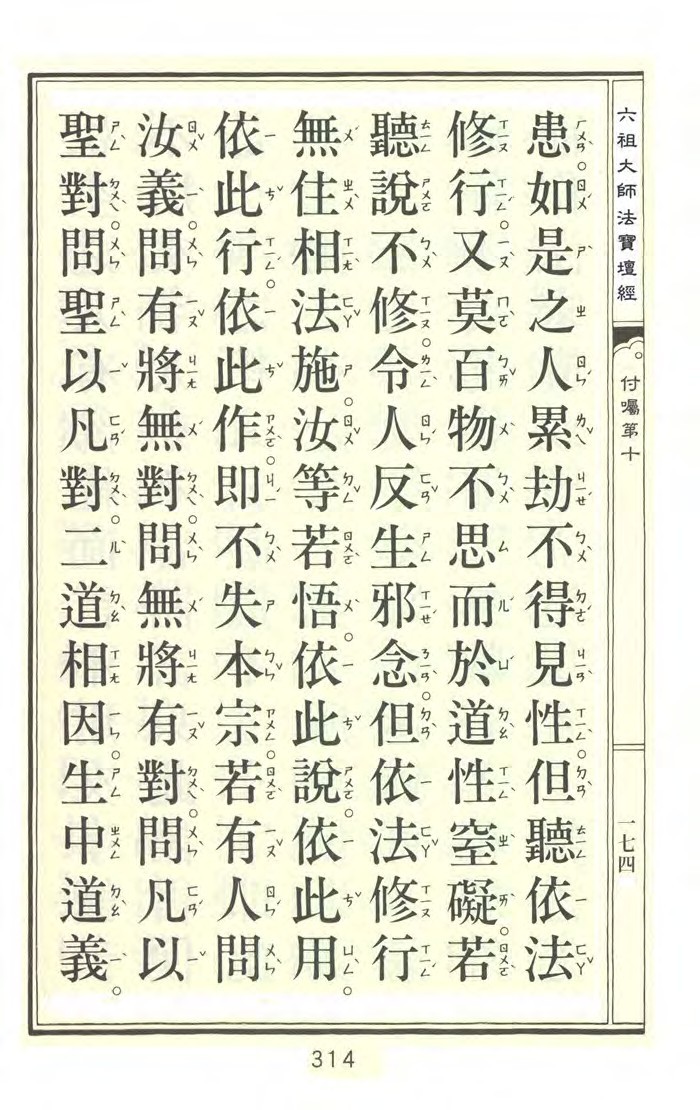 六祖大師法寶壇經
付囑第十
一七四
患。如是之人累劫不得見性。但聽依法
修行。又莫百物不思而於道性窒礙。若
聽說不修。令人反生邪念。但依法修行
無住相法施。汝等若悟。依此說。依此用。
依此行。依此作。即不失本宗。若有人問
汝義。問有將無對。問無將有對。問凡以
聖對。問聖以凡對。二道相因。生中道義。
314